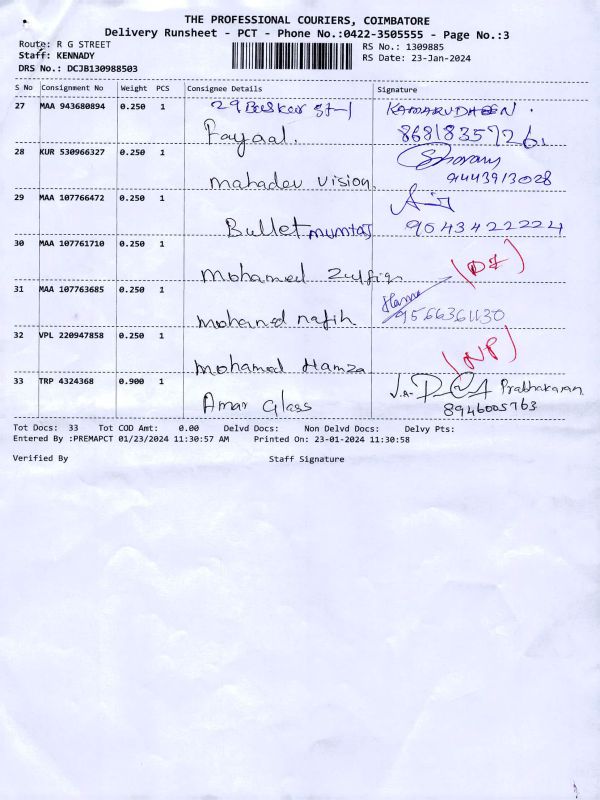 THE PROFESSIONAL COURIERS, COIMBATORE
Delivery Runsheet - PCT - Phone No.:0422-3505555 - Page No.:3
Route: R G STREET
RS No.: 1309885
Staff: KENNADY
RS Date: 23-Jan-2024
DRS No.: DCJB130988503
S No Consignment No Weight PCS Consignee Details Signature
27 MAA 943680894 0.250 1 29 Baskar St-1 KAMARUDHEEN.
Fayaal. 8681835726
28 KUR 530966327 0.250 1
mahadev vision 9443913028
29 MAA 107766472 0.250 1
Bullet mumtaj 9543422224
30 MAA 107761710 0.250 1
mohamed (DL)
31 MAA 107763685 0.250 1 Hamsa
mohamed nafih 9566361130
32 VPL 220947858 0.250 1
mohamed Hamza (NP)
33 TRP 4324368 0.900 1 Prabhakaran
Amar Glass 8946005763
Tot Docs: 33 Tot COD Amt: 0.00 Delvd Docs: Non Delvd Docs: Delvy Pts:
Entered By :PREMAPCT 01/23/2024 11:30:57 AM Printed On: 23-01-2024 11:30:58
Verified By Staff Signature